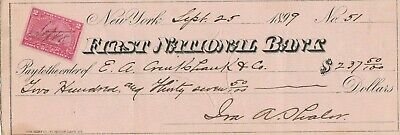 New York Sept. 25 1899 No 51
FIRST NATIONAL BANK
Pay to the order of E. A. Cruikshank & Co. $237 50/100
Two Hundred and Thirty seven 50/100 Dollars
Ira A.